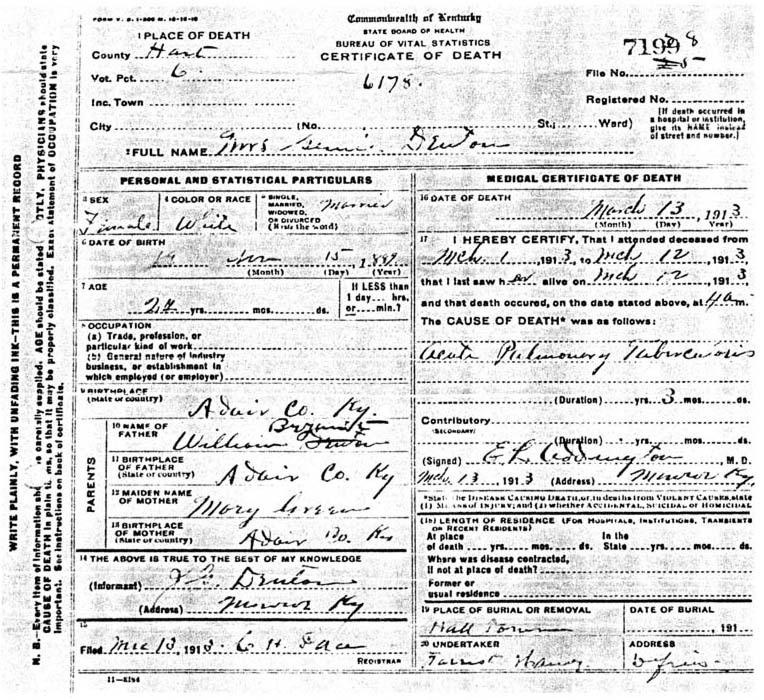 FORM V. S. 1-
Commonwealth of Kentucky
STATE BOARD OF HEALTH
BUREAU OF VITAL STATISTICS
CERTIFICATE OF DEATH
6178.
1 PLACE OF DEATH
County Hart
Vot. Pct. 6
Inc. Town
City (No. St.; Ward)
7199 8
File No.
Registered No.
(If death occurred in
a hospital or institution,
give its NAME instead
of street and number.)
2 FULL NAME Mrs Denton
PERSONAL AND STATISTICAL PARTICULARS
3 SEX
Female
4 COLOR OR RACE
White
5 SINGLE,
MARRIED,
WIDOWED,
OR DIVORCED
(Write the word)
Married
6 DATE OF BIRTH
Nov 15, 188
(Month) (Day) (Year)
7 AGE
24 yrs. mos. ds.
If LESS than
1 day... hrs.
or.... min.?
8 OCCUPATION
(a) Trade, profession, or
particular kind of work
(b) General nature of industry
business, or establishment in
which employed (or employer)
9 BIRTHPLACE
(State or country) Adair Co. Ky.
PARENTS
10 NAME OF
FATHER William Bryant
11 BIRTHPLACE
OF FATHER
(State or country) Adair Co. Ky
12 MAIDEN NAME
OF MOTHER Mary Green
13 BIRTHPLACE
OF MOTHER
(State or country) Adair Co. Ky
14 THE ABOVE IS TRUE TO THE BEST OF MY KNOWLEDGE
(Informant) Denton
(Address) Ky
15
Filed 13, 1913 H.
REGISTRAR
11—3184
MEDICAL CERTIFICATE OF DEATH
16 DATE OF DEATH
March 13, 1913
(Month) (Day) (Year)
17 I HEREBY CERTIFY, That I attended deceased from
Mch. 1, 1913, to Mch 12, 1913
that I last saw her alive on Mch 12, 1913
and that death occured, on the date stated above, at 4 am.
The CAUSE OF DEATH* was as follows:
Acute Pulmonary Tuberculosis
(Duration) yrs. 3 mos. ds.
Contributory
(SECONDARY)
(Duration) yrs. mos. ds.
(Signed) , M. D.
Mch 13, 1913 (Address) Ky.
*State the DISEASE CAUSING DEATH, or, in deaths from VIOLENT CAUSES, state
(1) MEANS OF INJURY; and (2) whether ACCIDENTAL, SUICIDAL or HOMICIDAL
(18) LENGTH OF RESIDENCE (FOR HOSPITALS, INSTITUTIONS, TRANSIENTS
OR RECENT RESIDENTS)
At place In the
of death yrs. mos. ds. State yrs. mos. ds.
Where was disease contracted,
if not at place of death?
Former or
usual residence
19 PLACE OF BURIAL OR REMOVAL
DATE OF BURIAL
, 191
20 UNDERTAKER
ADDRESS
WRITE PLAINLY, WITH UNFADING INK—THIS IS A PERMANENT RECORD
N. B.—Every item of information carefully supplied. AGE should be stated PHYSICIANS should state
CAUSE OF DEATH in plain so that it may be properly classified. Exact statement of OCCUPATION is very
important. See instructions on back of certificate.